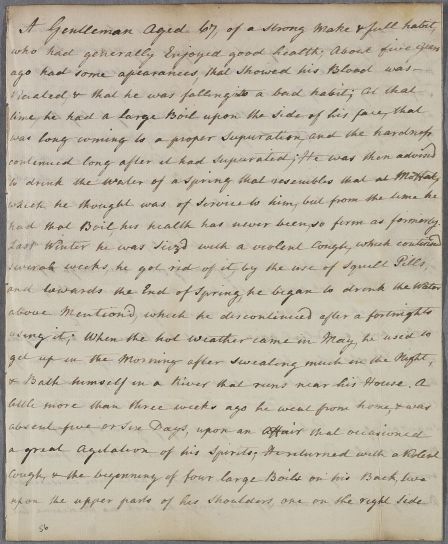 A Gentleman Aged 67, of a strong Make & full habit,
who had generally Enjoyed good health; About five years
ago had some apearances, that Showed his Blood was
viciated, & that he was falling to a bad habit; at that
time he had a large Boil upon the side of his face, that
was long coming to a proper Supuration, and the hardness
continued long after it had Supurated; He was then advised
to drink the Water of a Spring that resembles that at Moffat,
which he thought was of Service to him, but from the time he
had that Boil his health has never been so firm as formerly.
Last Winter he was Seiz'd with a violent Cough, which continued
Several weeks, he got rid of it, by the use of Squill Pills,
and towards the End of Spring, he began to drink the Water
above Mention'd, which he discontinued after a fortnights
using it; When the hot weather came in May, he used to
get up in the Morning after Sweating much in the Night,
& Bath himself in a River that runs near his House. A
little more than three weeks ago he went from home, & was
absent five or Six Days, upon an affair that occasioned
a great Agitation of his Spirits; He returned with a Violent
Cough, & the beginning of four large Boils on his Back, two
upon the upper parts of his Shoulders, one on the right Side
56